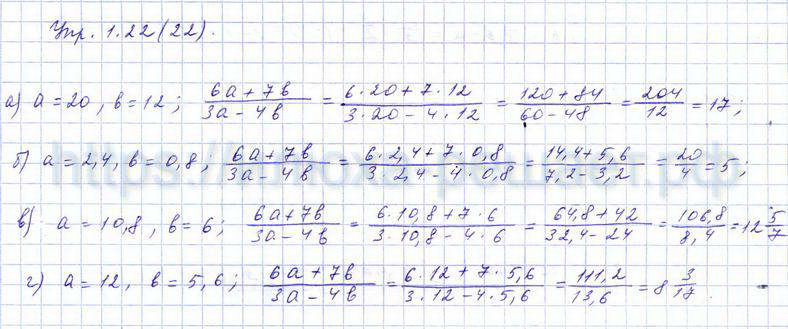 Упр. 1.22(22).
а) a = 20, b = 12; (6a + 7b)/(3a - 4b) = (6·20 + 7·12)/(3·20 - 4·12) = (120 + 84)/(60 - 48) = 204/12 = 17;
б) a = 2,4, b = 0,8; (6a + 7b)/(3a - 4b) = (6·2,4 + 7·0,8)/(3·2,4 - 4·0,8) = (14,4 + 5,6)/(7,2 - 3,2) = 20/4 = 5;
в) a = 10,8, b = 6; (6a + 7b)/(3a - 4b) = (6·10,8 + 7·6)/(3·10,8 - 4·6) = (64,8 + 42)/(32,4 - 24) = 106,8/8,4 = 12 5/7
г) a = 12, b = 5,6; (6a + 7b)/(3a - 4b) = (6·12 + 7·5,6)/(3·12 - 4·5,6) = 111,2/13,6 = 8 3/17.